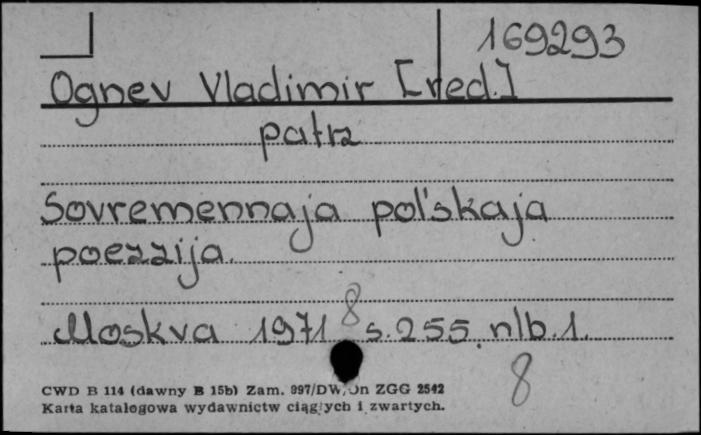 169293
Ognev Vladimir [red.]
patrz
Sovremennaja pol'skaja
poezzija.
8
Moskva 1971 s. 255, nlb. 1.
8
CWD B 114 (dawny B 15b) Zam. 997/DW/Jn ZGG 2542
Karta katalogowa wydawnictw ciągłych i zwartych.